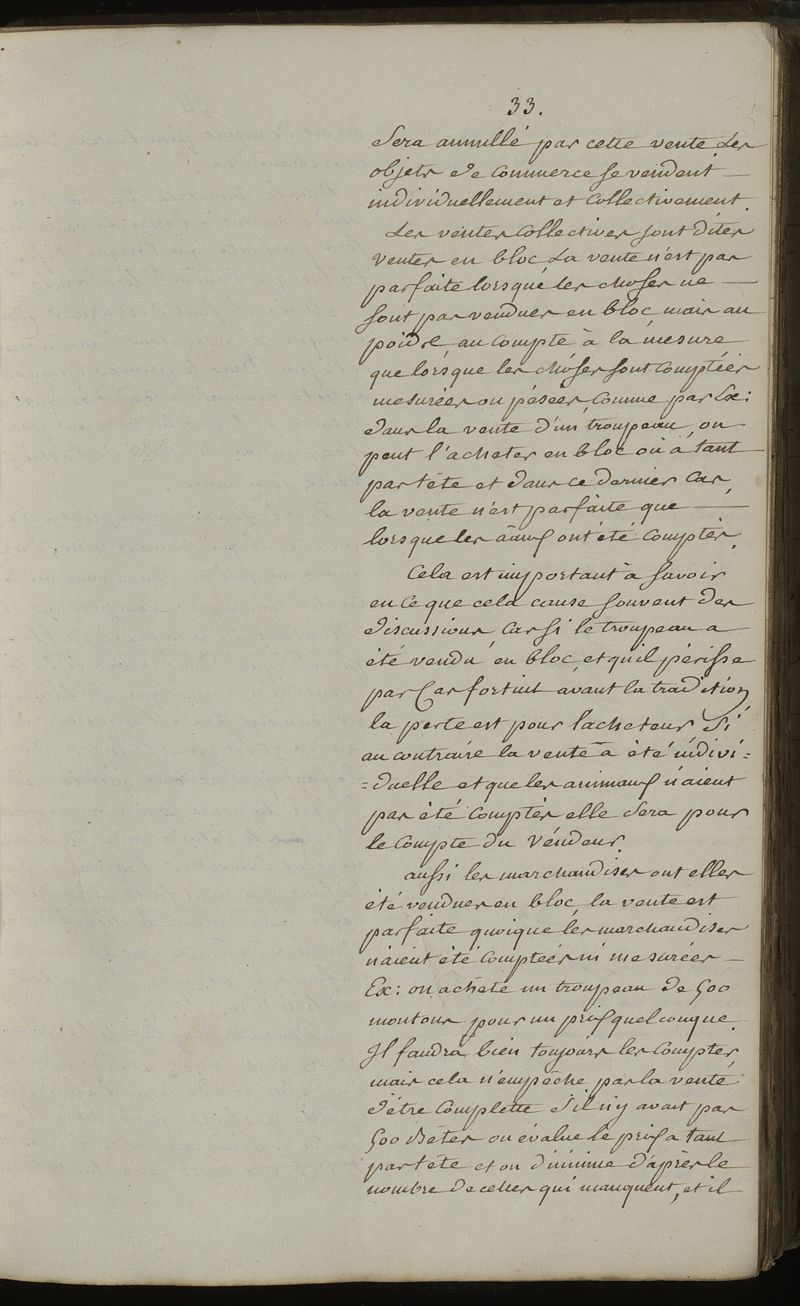 33.
Sera annullé par cette vente. Les
objets de Commerce se vendent
individuellement et Collectivement.
Les ventes Collectives sont dites
Ventes en bloc La vente n'est pas
parfaite lorsque les choses ne
sont pas vendues en bloc mais au
poids au compte à la mesure
que lorsque les choses sont comptées
mesurées ou pésées Comme par Ex:
dans la vente d'un troupeau, on
peut l'acheter en bloc où à tant
par tête et dans ce dernier Cas,
la vente n'est parfaite que
lorsque les aaux ont été Comptés.
Cela est important à savoir
en ce que cela cause souvent des
discussions, Car si le troupeau a
été vendu en bloc, et qu'il périsse
par Cas fortuit avant la tradition
la perte est pour l'acheteur Si
au contraire la vente a été indivi=
=duelle et que les animaux n'aient
pas été Comptés elle Sera pour
le Compte du Véndeur.
aussi les marchandises ont elles
été vendues en bloc, la vente est
parfaite quoique les marchandises
n'aient été Comptées ni mesurées
Ex: on achète un troupeau de 500
moutons pour un prix quelconque.
Il faudra bien toujours les Compter,
mais cela n'empêche pas la vente
d'être Complette S'il n'y avait pas
500 Bêtes on évalue le prix a tant
par tête et on diminue d'après le
nombre de celles qui manquent, et il